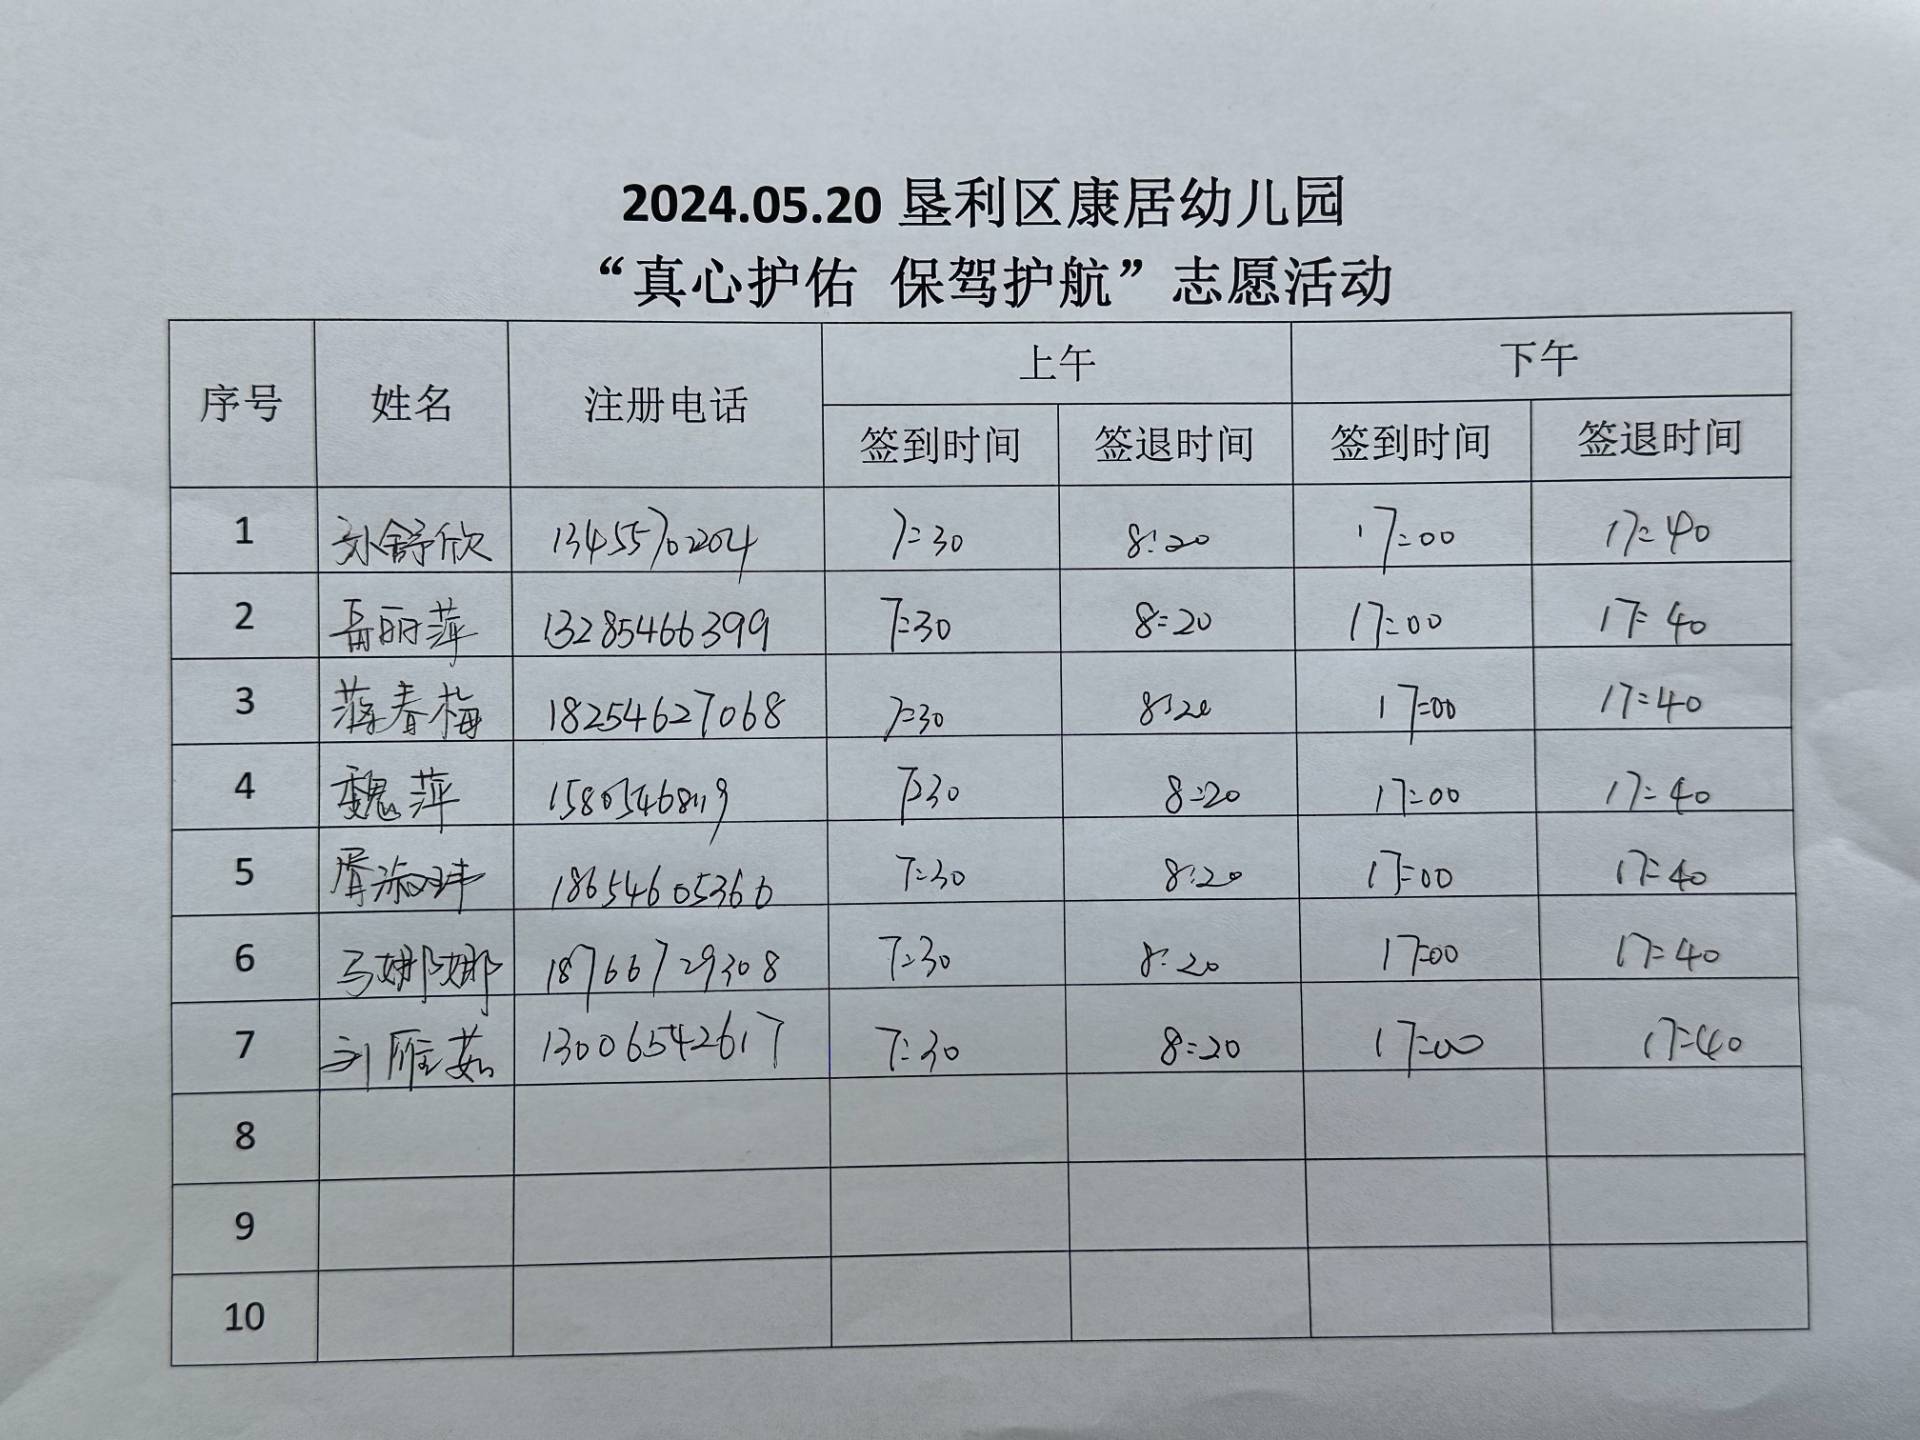 2024.05.20 垦利区康居幼儿园
“真心护佑 保驾护航”志愿活动
序号 姓名 注册电话 上午 下午
签到时间 签退时间 签到时间 签退时间
1 孙舒欣 13455702204 7:30 8:20 17:00 17:40
2 岳丽萍 13285466399 7:30 8:20 17:00 17:40
3 蒋春梅 18254627068 7:30 8:20 17:00 17:40
4 魏萍 15805468119 7:30 8:20 17:00 17:40
5 胥淑玮 18654605366 7:30 8:20 17:00 17:40
6 马娜娜 18766729308 7:30 8:20 17:00 17:40
7 刘雁茹 13006542617 7:30 8:20 17:00 17:40
8
9
10